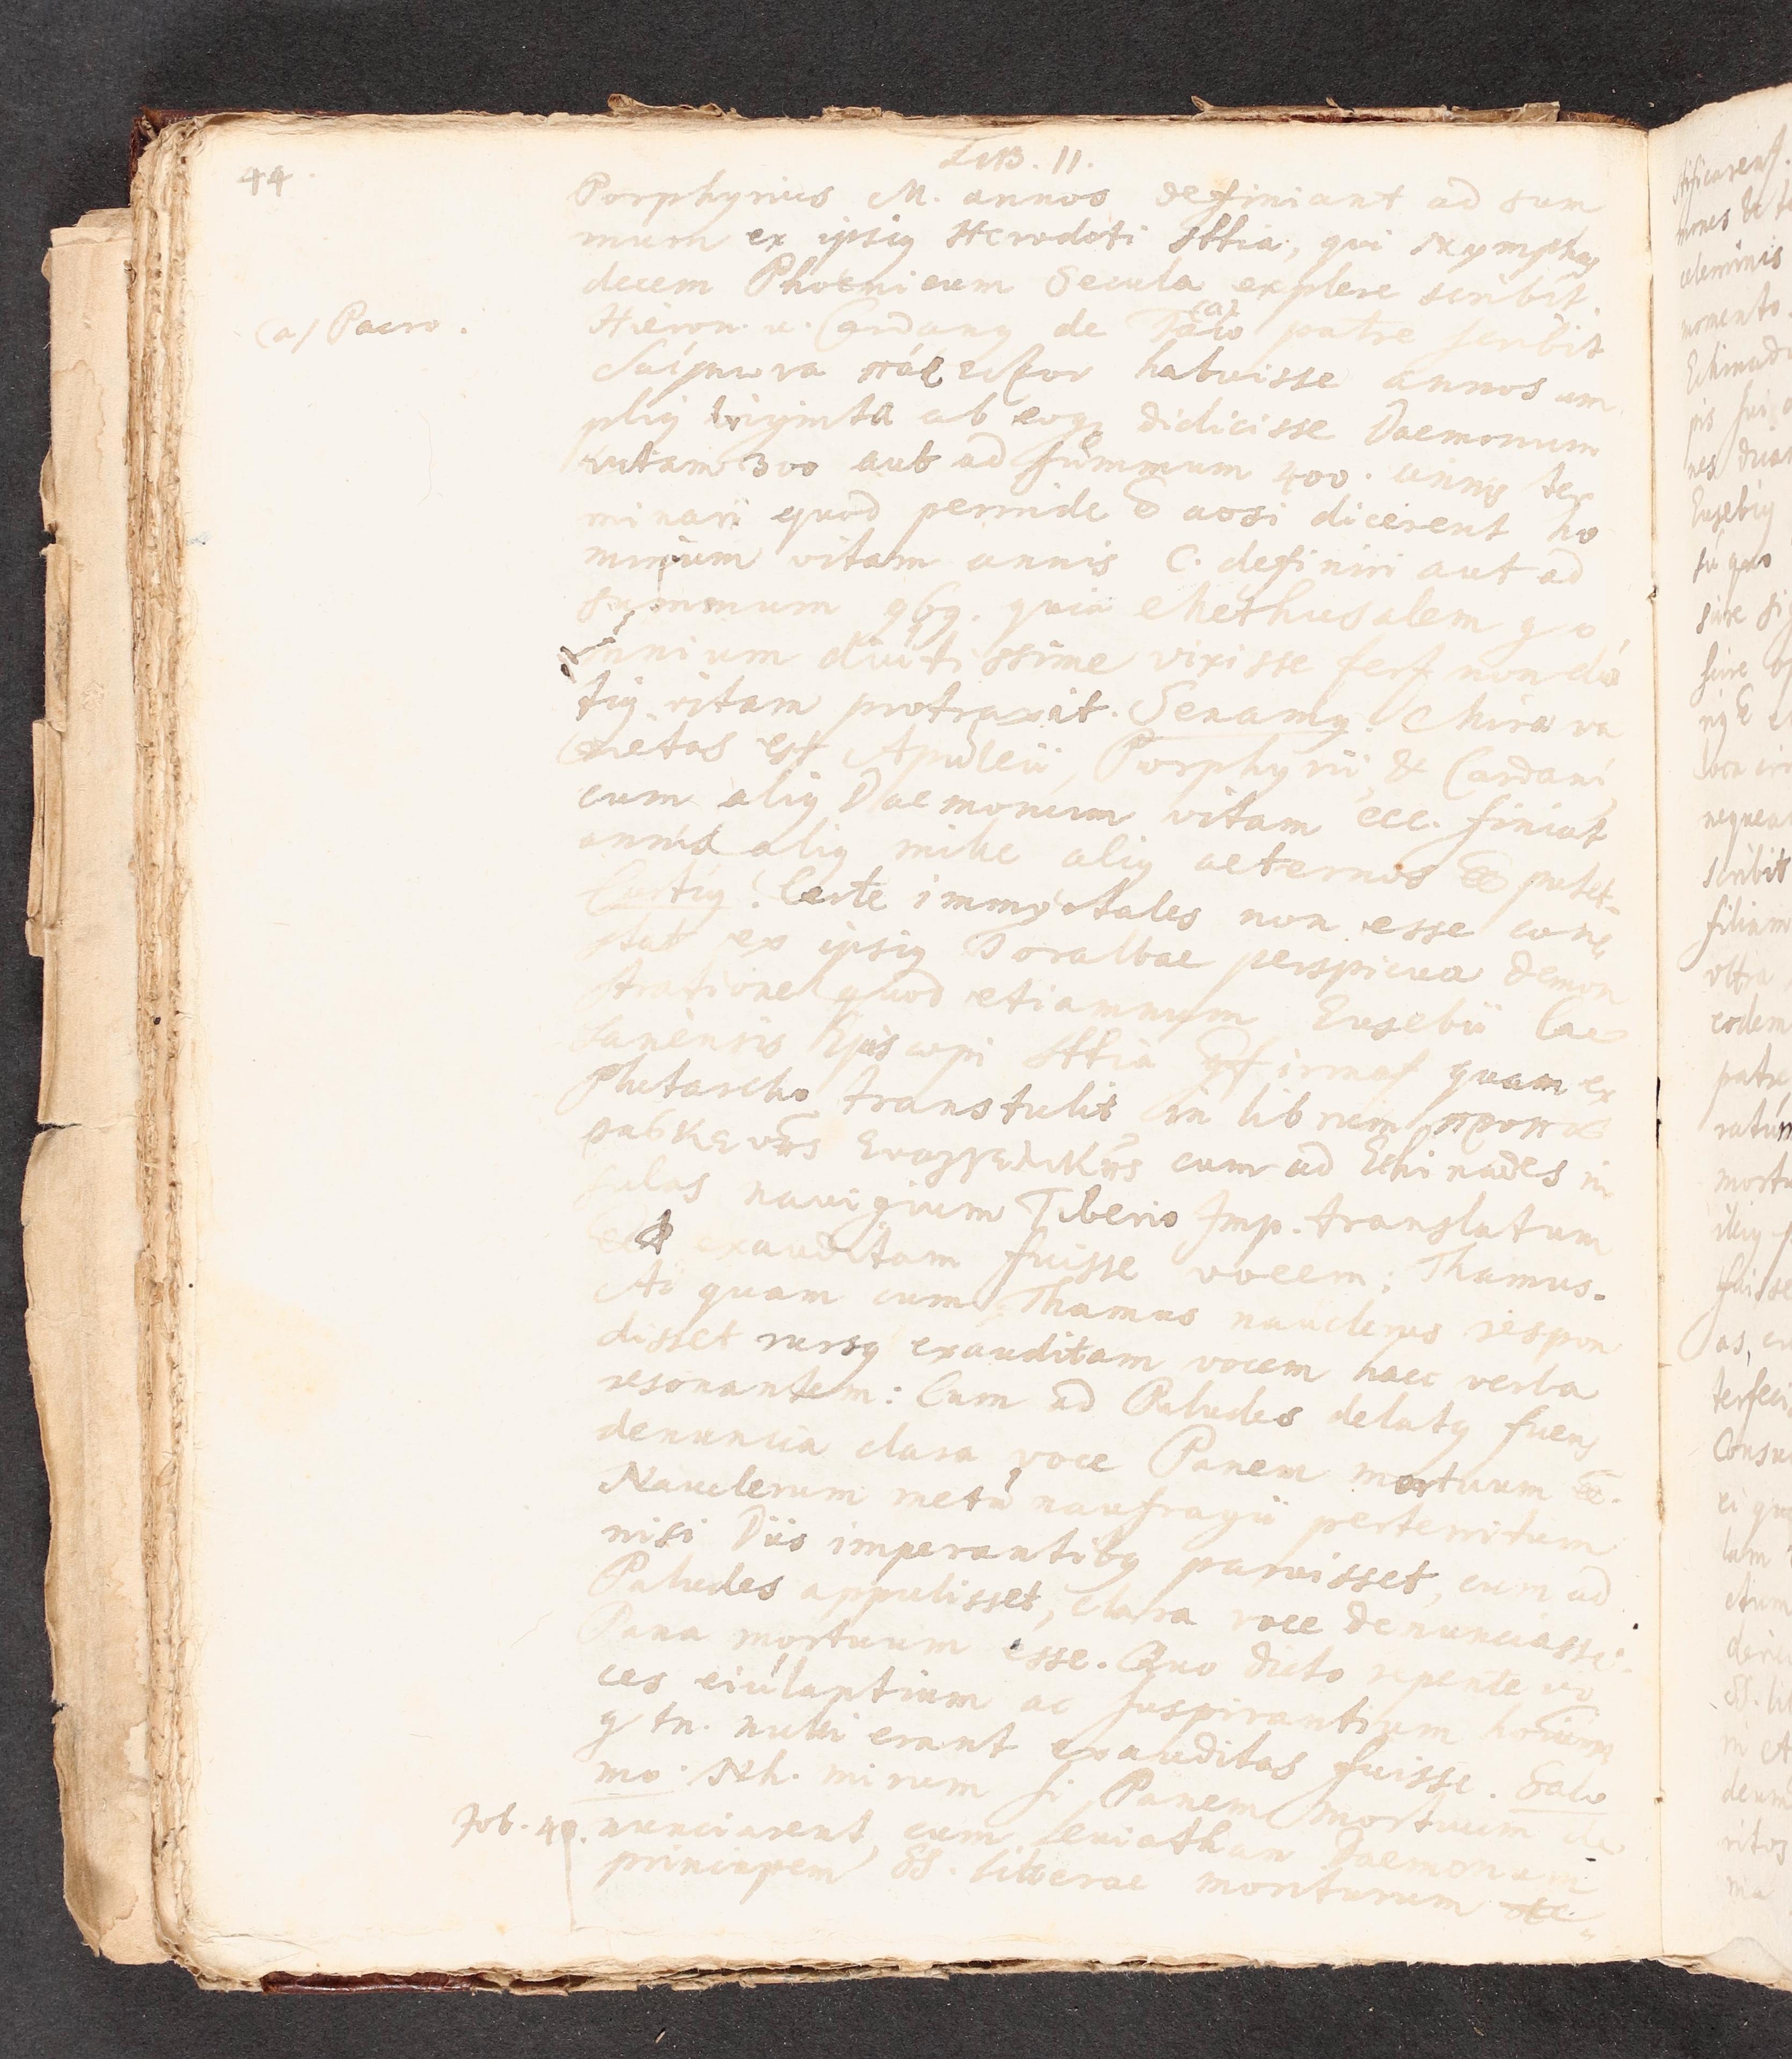 44.
LIB. II.
Porphyrius M. annos definiant ad sum
mum ex ipsiq Herodoti sttia, qui Nymphaq
decem Phoenicum Secula explere scribit.
(a) Pacio.
Hieron. v. Cardanq de Tacio (a) patre scribit
δαίμονα πάρεδρον habuisse annos am
pliq triginta ab eoqz didicisse Daemonum
vitam 300 aut ad summum 400. annis ter
minari quod perinde ē acsi dicerent ho
minum vitam annis C. definiri aut ad
summum 969. quia Methusalem q o
mnium diutissime vixisse fert non diu
tiq vitam protraxit. Senamq. Mira va
rietas est Apuleii, Porphyrii, & Cardani,
cum aliq Daemonum vitam ccc. finiat
annis aliq mille aliq aeternos eē putet.
Curtiq. Certe immortales non esse con
stat ex ipsiq Toralbae perspicua demon
stratione quod etiamnum Eusebii Cae
sariensis Episcopi sttia cōfirmat quam ex
Plutarcho transtulit in librum προπα
ρασκευῆς Ευαγγελικῆς cum ad Echinades in
sulas navigium Tiberio Imp. translatum
eēt exauditam fuisse vocem: Thamus.
Ac quam cum Thamus nauclerus respon
disset rursq exauditam vocem haec verba
resonantem: Cum ad Paludes delatq fueris
denuncia clara voce Panem mortuum eē.
Nauclerum metu naufragii perterritum
nisi Diis imperantibq paruisset, cum ad
Paludes appulisset, clara voce denunciasse
Pana mortuum esse. Quo dicto repente vo
ces eiulantium ac suspirantium hōium
q tn. nulli erant exauditas fuisse. Salo
mo. Nh. mirum si Panem mortuum de
Job. 40.
nunciarent, cum leviathan Daemonum
principem SS. literae moriturum